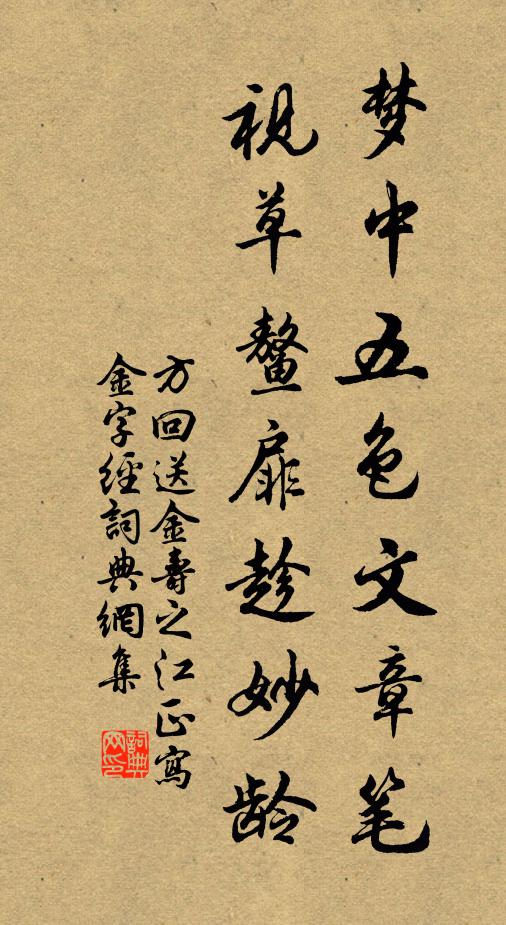 梦中五色文章笔
视草鳌扉趁妙龄
方回送金寿之江正写
金字經詞典網集
詞典网印